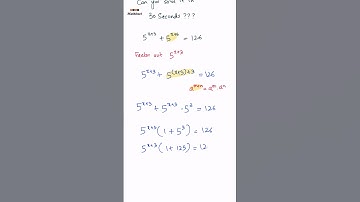 Can you solve it in
30 Seconds ???
5^{x+3} + 5^{x+6} = 126
Factor out 5^{x+3}
5^{x+3} + 5^{(x+3)+3} = 126
a^{m+n} = a^m · a^n
5^{x+3} + 5^{x+3} · 5^3 = 126
5^{x+3} (1 + 5^3) = 126
5^{x+3} (1 + 125) = 12